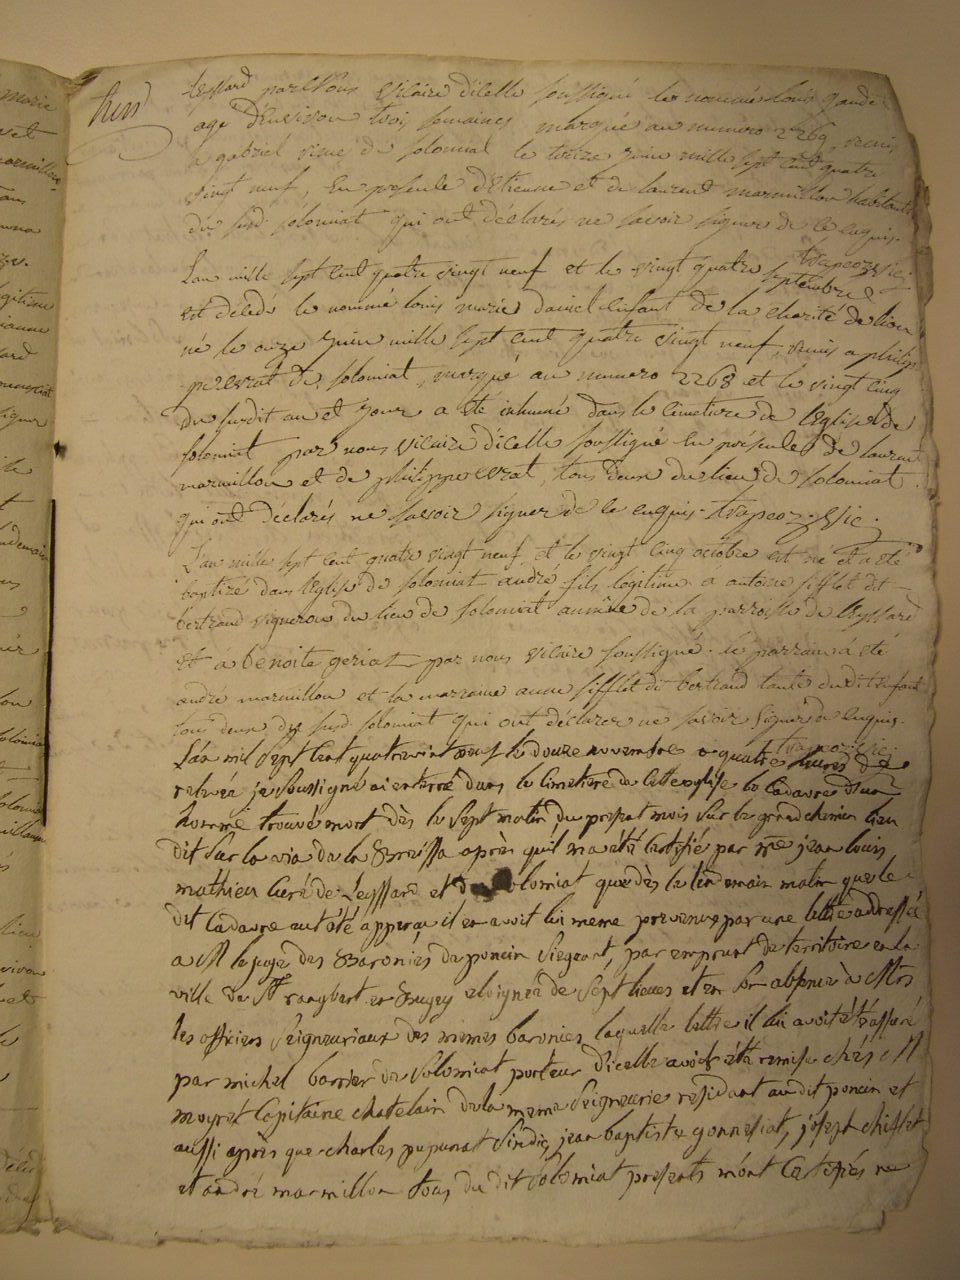 leyssard par Nous vicaire dicelle soussigné le nommé louis gaudet
agé denviron trois semaines marqué au numero 2269, remis
a gabriel rime de solomiat le treize juin mille sept cent quatre
vingt neuf, En presence detienne et de laurent marmillon habitants
du susd solomiat qui ont déclarés ne savoir signer de ce enquis.
trapeoz vic.
L'an mille sept cent quatre vingt neuf et le vingt quatre septembre
est décédé le nommé louis marie daniel enfant de la charité de lion
né le onze juin mille sept cent quatre vingt neuf, remis a philip
pe evrat de solomiat, marqué au numero 2268 et le vingt cinq
du susdit an et jour a été inhumé dans le cimetiere de l'Eglise de
solomiat par nous vicaire dicelle soussigné En présence de laurent
marmillon et de philippe evrat, tous deux du lieu de solomiat
qui ont déclarés ne savoir signer de ce enquis. trapeoz vic.
L'an mille sept cent quatre vingt neuf et le vingt cinq octobre est né et a été
baptizé dans l'Eglise de solomiat andré fils légitime à antoine sifflet dit
bertrand vigneron du lieu de solomiat annexe de la parroisse de leyssard
et à benoite geriat par nous vicaire soussigné. le parrain à été
andré marmillon et la marraine anne sifflet dit bertrand tante dudit enfant
tous deux du susd solomiat qui ont déclarer ne savoir signer de enquis.
trapeoz vic.
L'an mil sept cent quatrevint neuf le douze novembre a quatre heures de
relevée je soussigné ai enterré dans le cimetiere de cette eglise le cadavre d'un
homme trouvé mort dès le sept matin du present mois sur le grand chemin lieu
dit sur la via de la Bressa après qu'il m'a été certifié par mre jean louis
mathieu curé de Leyssard et de solomiat que dès le lendemain matin que le
dit cadavre eut été apperçu il en avoit lui meme prevenus par une lettre addressée
a M le juge des Baronies de poncin siegeant, par emprunt de territoire en la
ville de St rambert en Bugey eloignée de sept lieues et en son absence à Mrs
les officiers seigneuriaux des memes baronies laquelle lettre il lui avoit été assuré
par michel barrier de solomiat porteur d'icelle avoir été remise chés M
moyret capitaine chatelain de la meme seigneurie residant au dit poncin et
aussi après que charles pupunat sindic, jean baptiste gonnesiat, joseph chifflet
et andré marmillon tous du dit solomiat presents m'ont certifiés ne